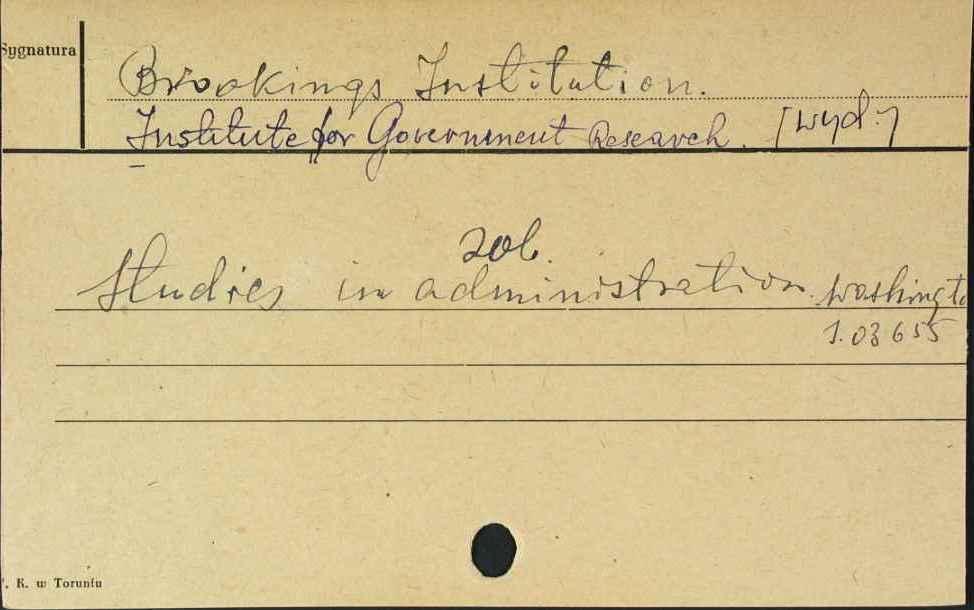 Sygnatura
Brookings Institution.
Institute for Government Research. [wyd.]
zob.
Studies in administration. Washingto
1.03655
. K. w Toruniu